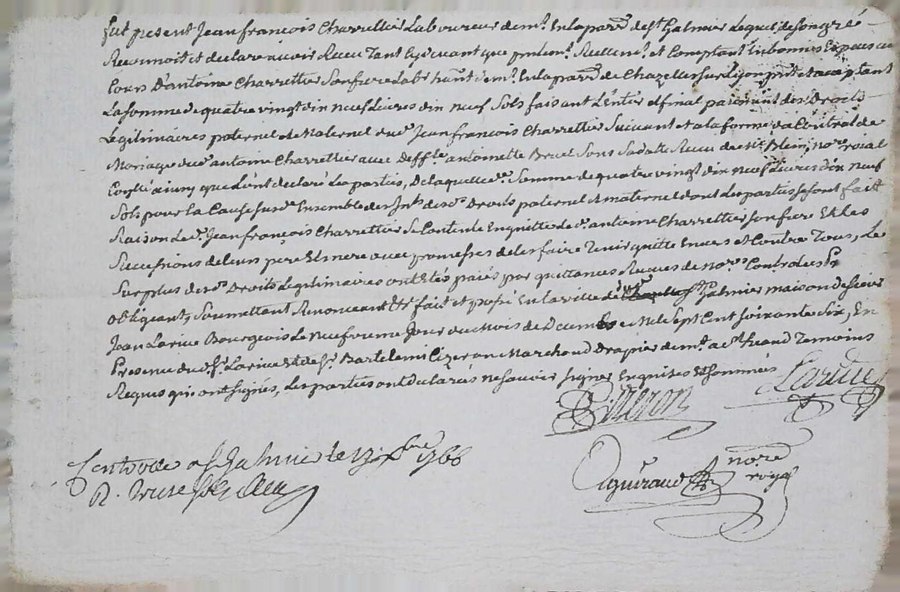 fut present Jean françois Charretier Laboureur dem.t En la par.e de S.t Galmier Lequel de Son gré
Reconnoit et declare avoir Recu Tant Cy devant que presentem.t Reellem.t et Comptant En bonnes Especes au
Cours D'antoine Charretier Son frere Lab.r hant dem.t En la par.e de Chazelles Sur Lyon pnt et acceptant
La Somme de quatre vingt dix neuf Livres dix neuf Sols faisant L'entier et final paiement des Droits
Legitimaires paternel et Maternel du d. Jean francois Charretier Suivant et a la forme du Contrat de
Mariage du d. antoine Charretier avec Deff.te antoinette Bruel Sous Sa datte Recu de M.e Blein, No.re roial
ainsy que L'ont declaré Les parties, De laquelle d. Somme de quatre vingt dix neuf Livres dix neuf
Sols pour la Cause Susd. Ensemble des Int.s des d. Droits paternel et maternel dont Les parties Se Sont fait
Raison Le d. Jean françois Charretier Se Contente En quitte le d. antoine Charretier Son frere Et Les
Successions de Leurs pere Et mere avec promesses de Les faire Tenir quitte Envers et Contre Tous, Le
Surplus des d. Droits Legitimaires ont Etés paiés par quittances Recues de No.res Controlées
obligeant, Soumettant Renonceant Etc fait et passé En la ville de S.t Galmier maison de Sieur
Jean Larive Bourgeois Le Neufvieme Jour du Mois de Decembre Mil Sept Cent Soixante Six, En
Presence du d. S.r Larive Et de S.r Bartelemi Cizeron Marchand Drapier dem.t a S.t Temoins
Requis qui ont Signés, Les parties ont Declarées ne Scavoir Signer Enquises Et Sommées
Cizeron Larive
Controllé a S.t Galmier le 17 Xbre 1766
R. treize Sols
Aguiraud nore
royal